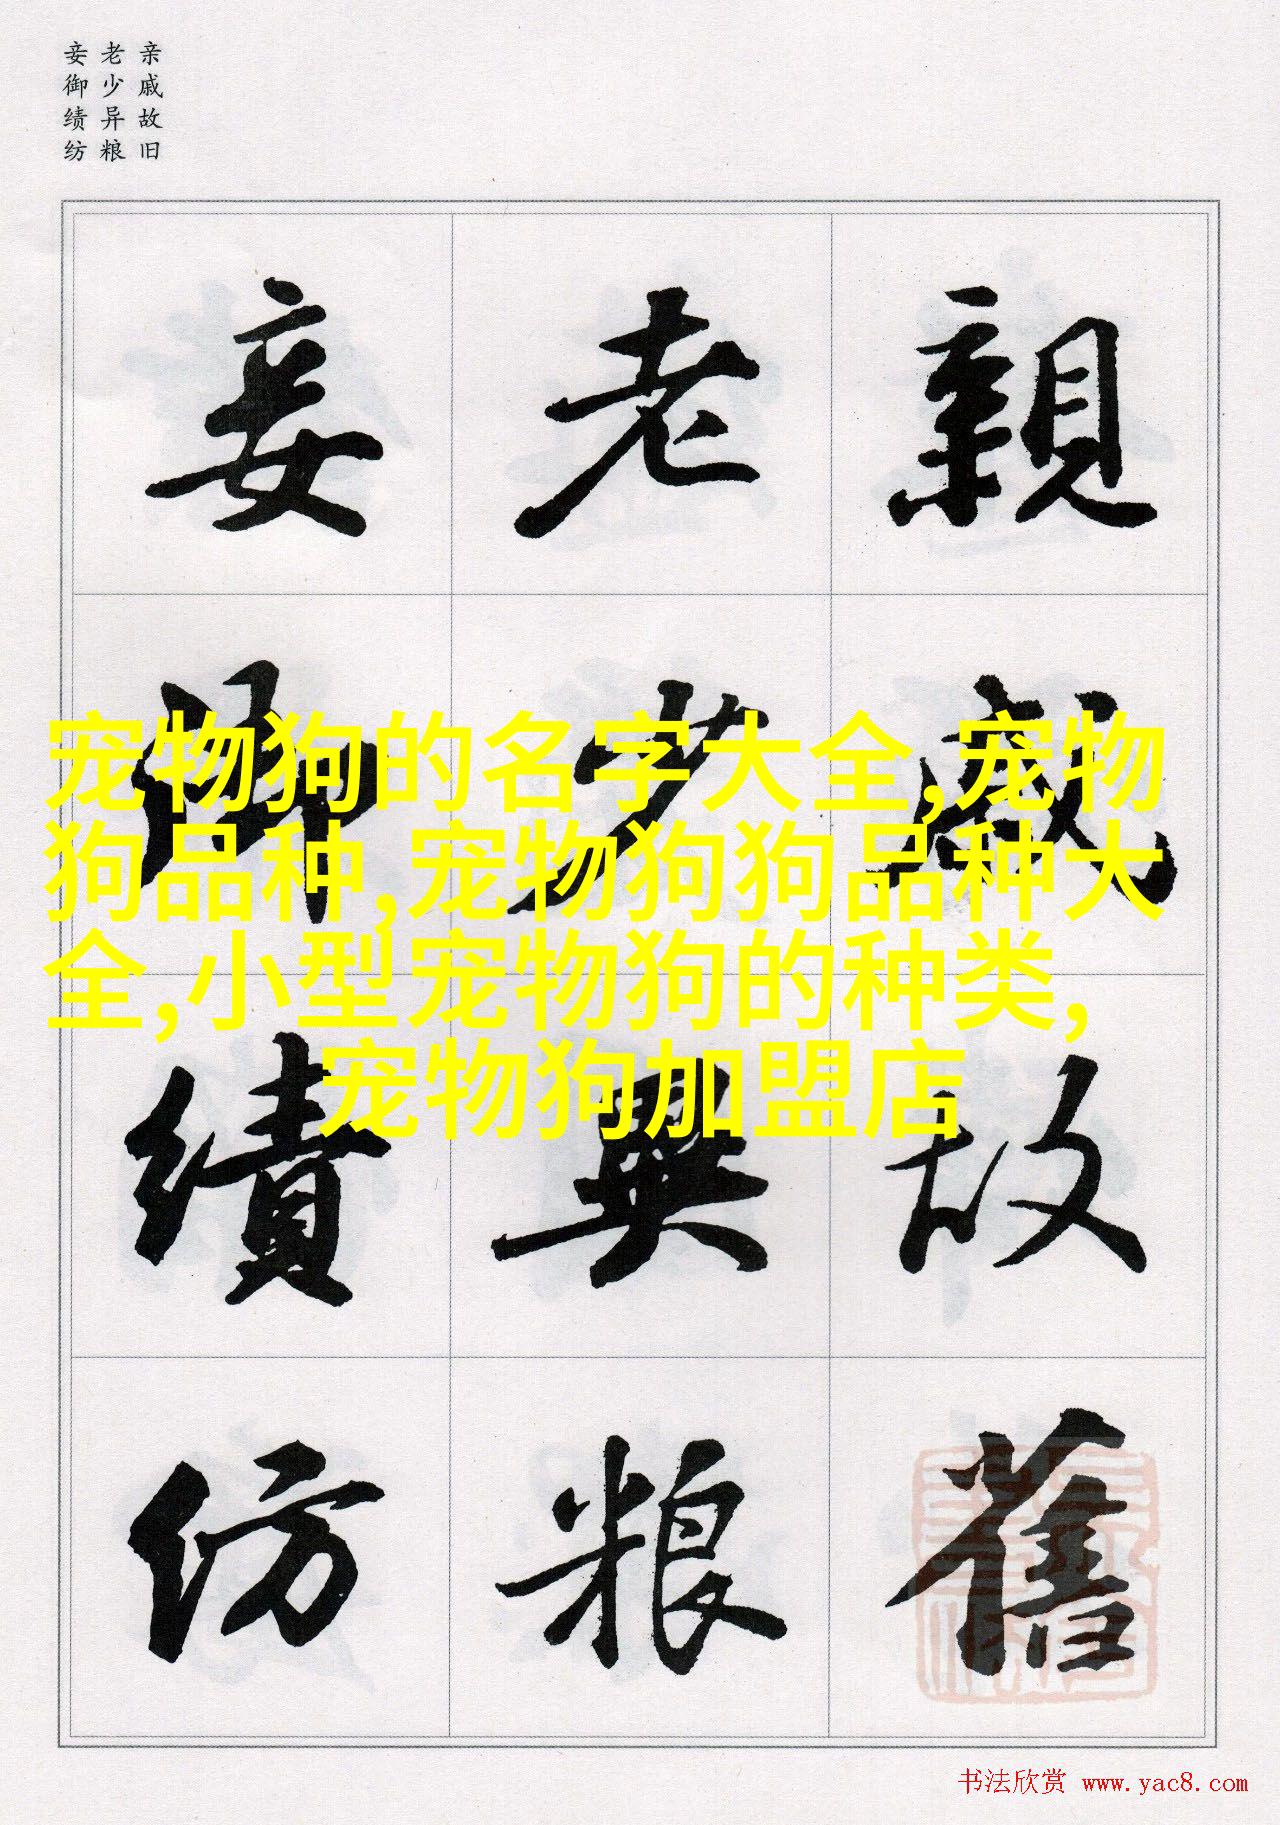 亲戚故旧
老少异粮
妾御绩纺
親戚故舊
老少異粮
妾御績紡
宠物狗的名字大全,宠物
狗品种,宠物狗狗品种大
全,小型宠物狗的种类,
宠物狗加盟店
书法欣赏 www.yac8.com